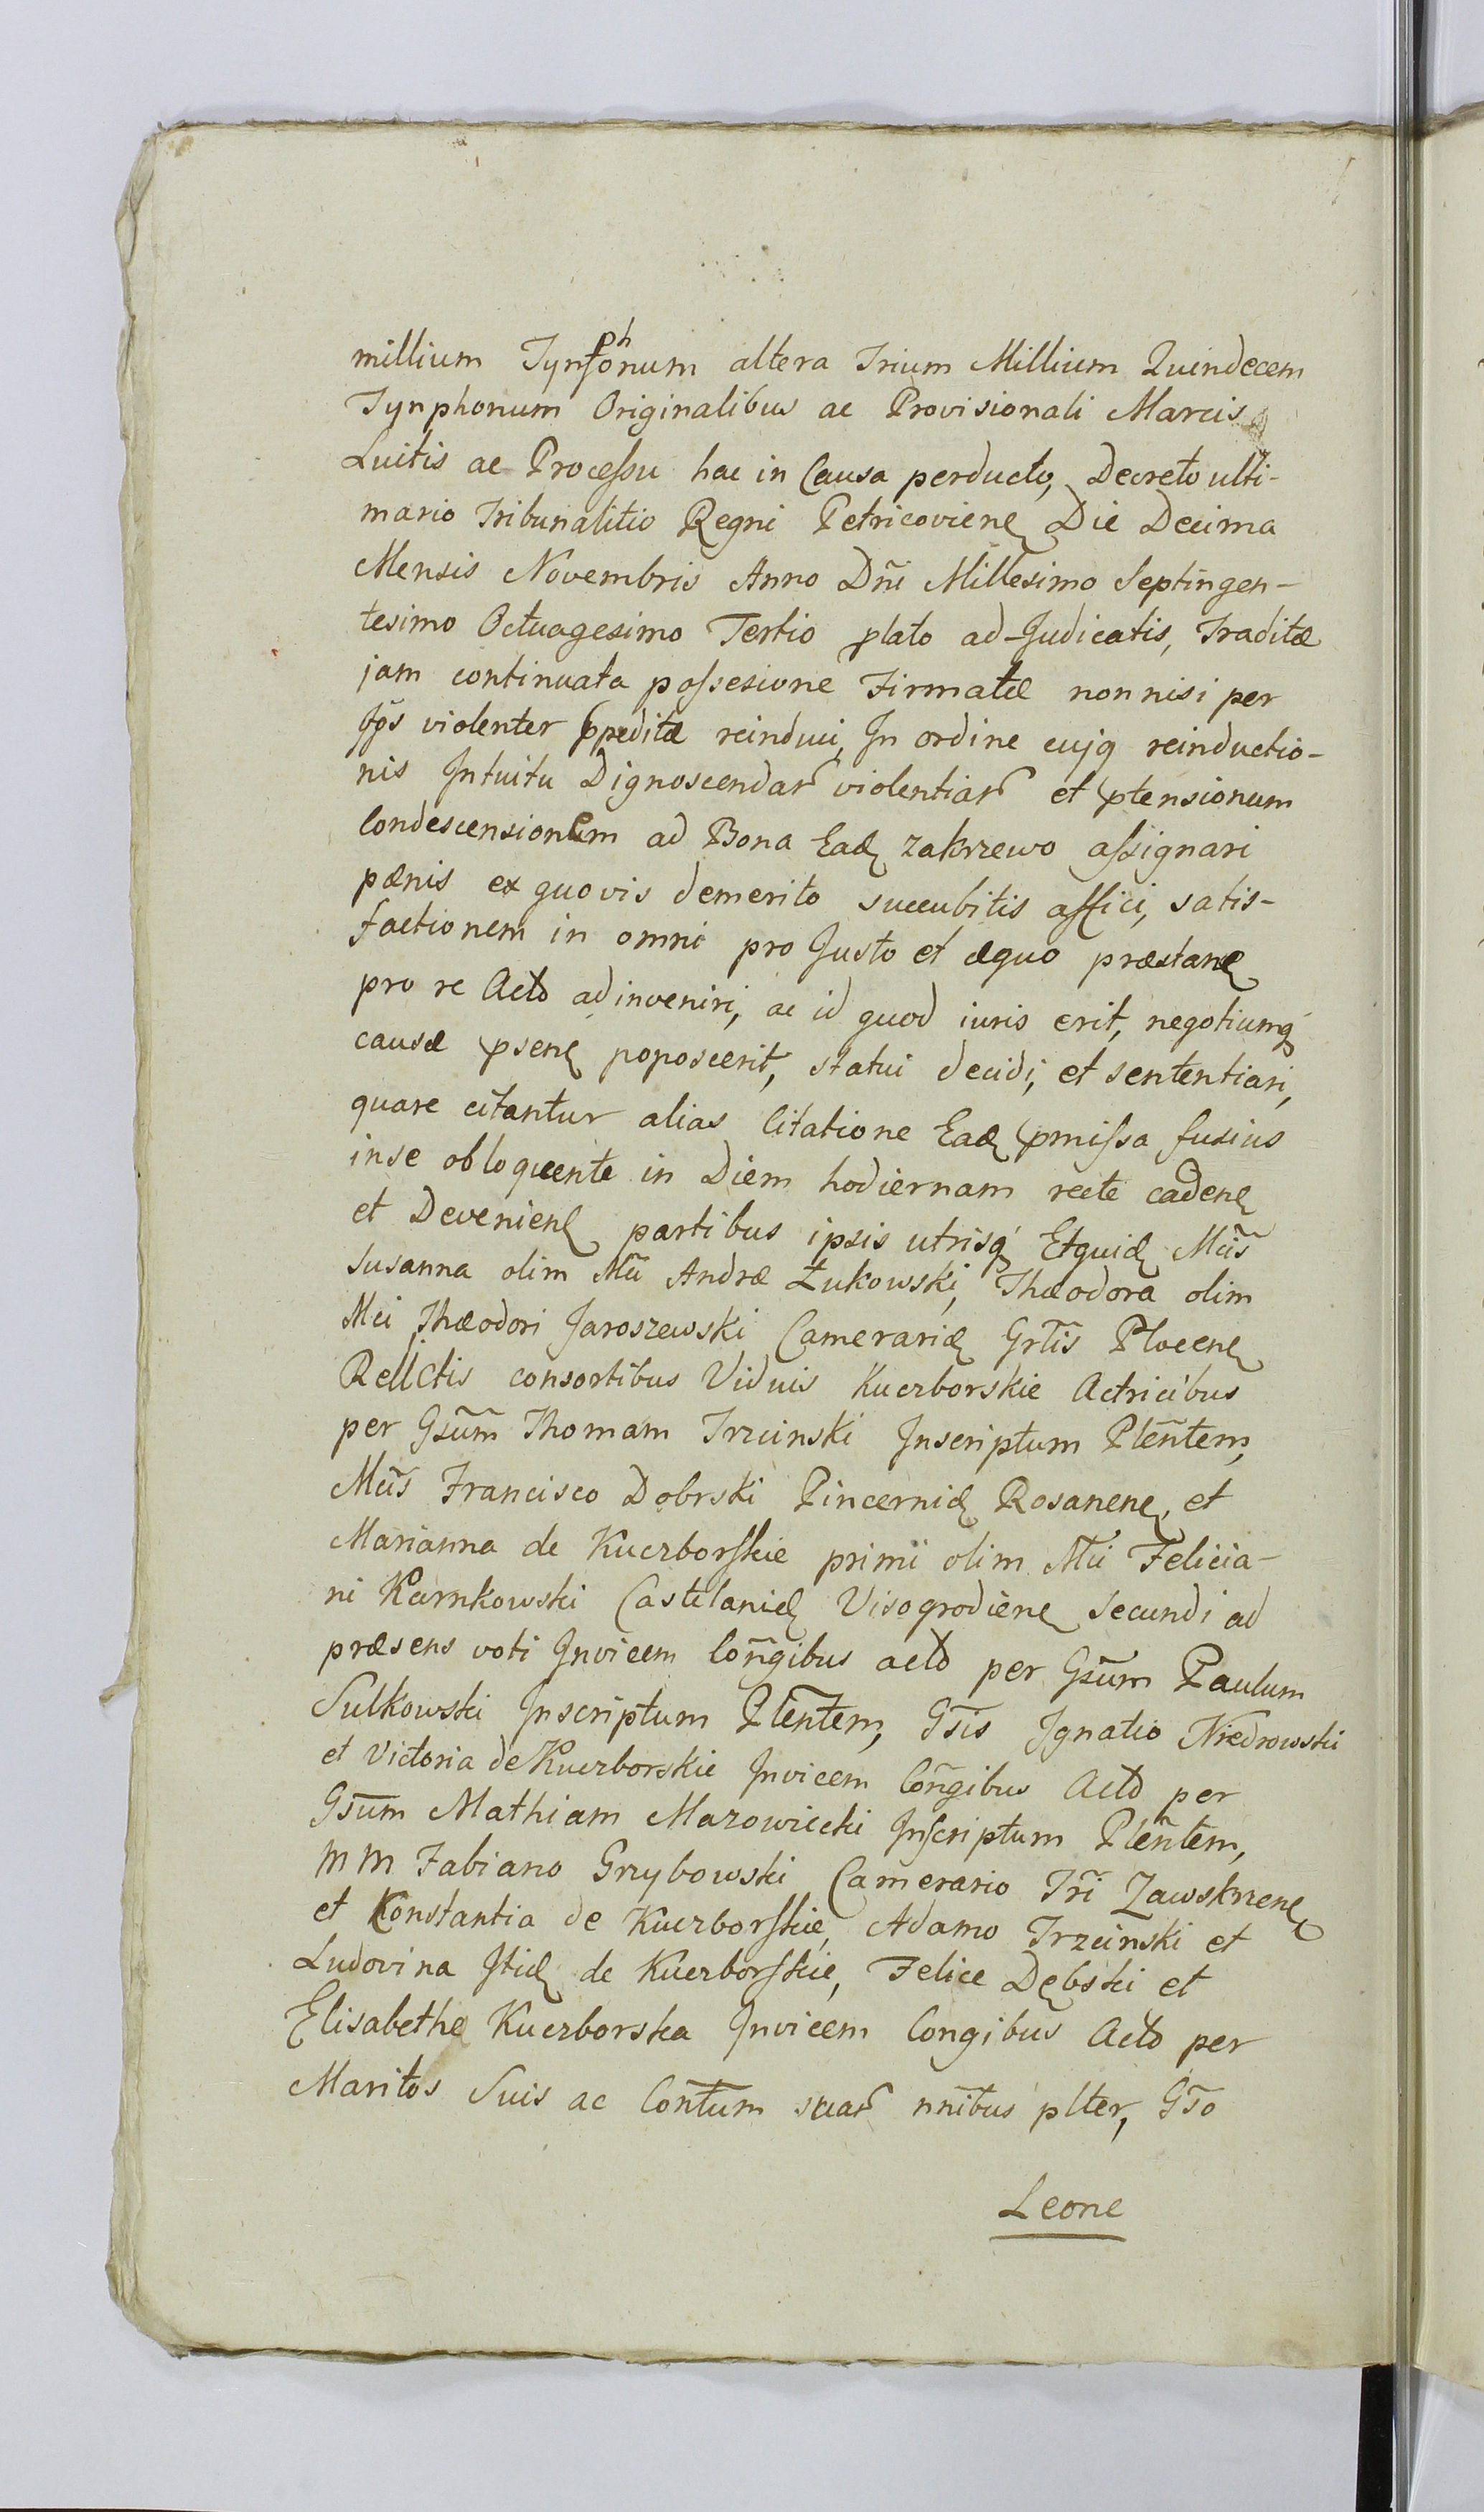 millium Tynphonum altera Trium Millium Quindecem
Tynphonum Originalibus ac Provisionali Marcis
Luitis ac Processu hac in Causa perducto, Decreto ulti-
mario Tribunalitio Regni Petricovienẽ Die Decima
Mensis Novembris Anno Dñi Millesimo Septingen-
tesimo Octuagesimo Tertio plato ad-Judicatis, Traditæ
jam continuata possesione Firmatæ nonnisi per
Jps violenter expeditæ reinduci, In ordine cujq reinductio-
nis Intuitu Dignoscendar violentiar et ptensionum
Condescensionem ad Bona Ead Zakrzewo assignari
pænis ex quovis demerito succubitis affici, satis-
factionem in omni pro Justo et æquo præstane
pro re Acto adinveniri, ac id quod iuris erit, negotiumq
causæ psene poposcerit, statui decidi, et sententiari,
quare citantur alias Citatione Ead pmissa fusius
inse obloquente in Diem hodiernam recte cadene
et Deveniene partibus ipsis utrisq Etquid Mcis
Susanna olim Mci Andræ Łukowski, Thæodora olim
Mci Thæodori Jaroszewski Camerarid Grlis Plocene
Rellctis consortibus Viduis Kuczborskie Actricibus
per Gsum Thomam Trzcinski Inscriptum Pleñtem,
Mcis Francisco Dobrski Pincernid Rosanene, et
Marianna de Kuczborskie primi olim Mci Felicia-
ni Karnkowski Castelanid Visogrodiene Secundi ad
præsens voti Invicem Coñgibus acto per Gsum Paulum
Sulkowski Inscriptum Pleñtem, Gsis Ignatio Niedrowski
et Victoria de Kuczborskie Invicem Coñgibus Acto per
Gsum Mathiam Mazowiecki Inscriptum Pleñtem,
MM Fabiano Grzybowski Camerario Tri Zawskrzene
et Konstantia de Kuczborskie, Adamo Trzcinski et
Ludovina Itid de Kuczborskie, Felice Dębski et
Elisabethe Kuczborska Invicem Congibus Acto per
Maritos Suis ac Coñtum suar nnibus plter, Gso
Leone